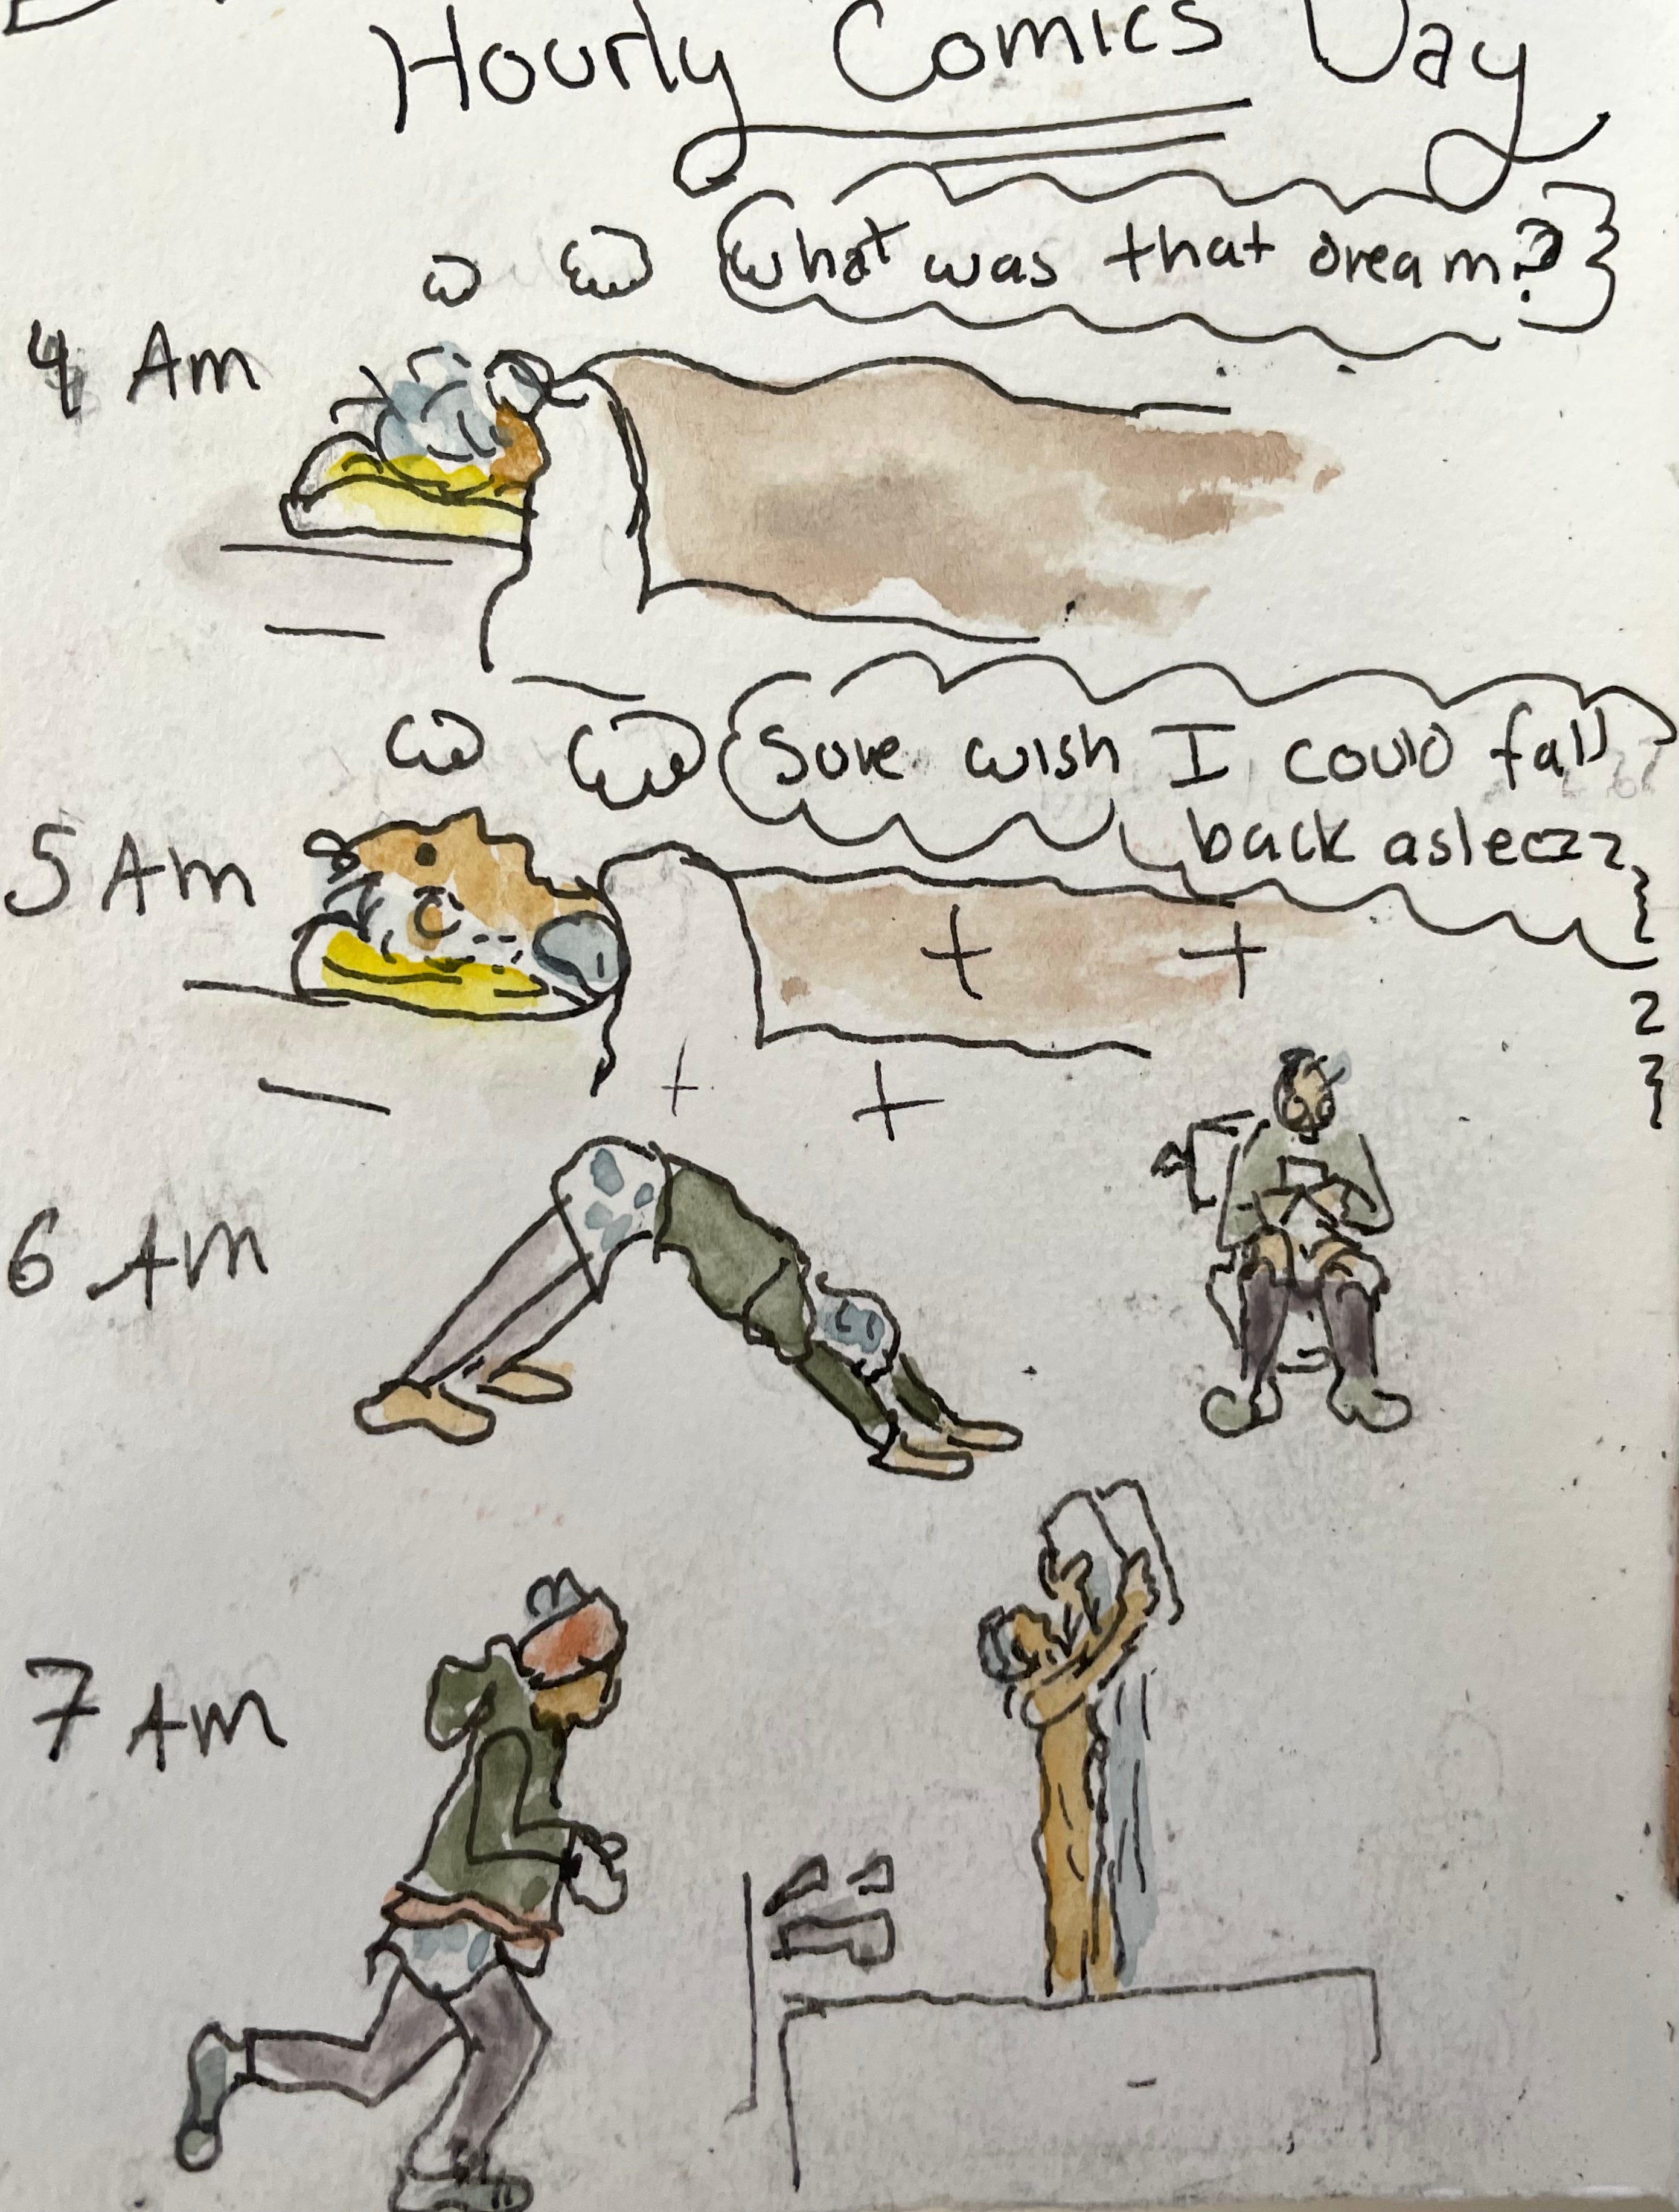 Hourly Comics Day
4 Am
What was that dream?
5 Am
Sure wish I could fall
back asleezzz
z
z
6 Am
7 Am